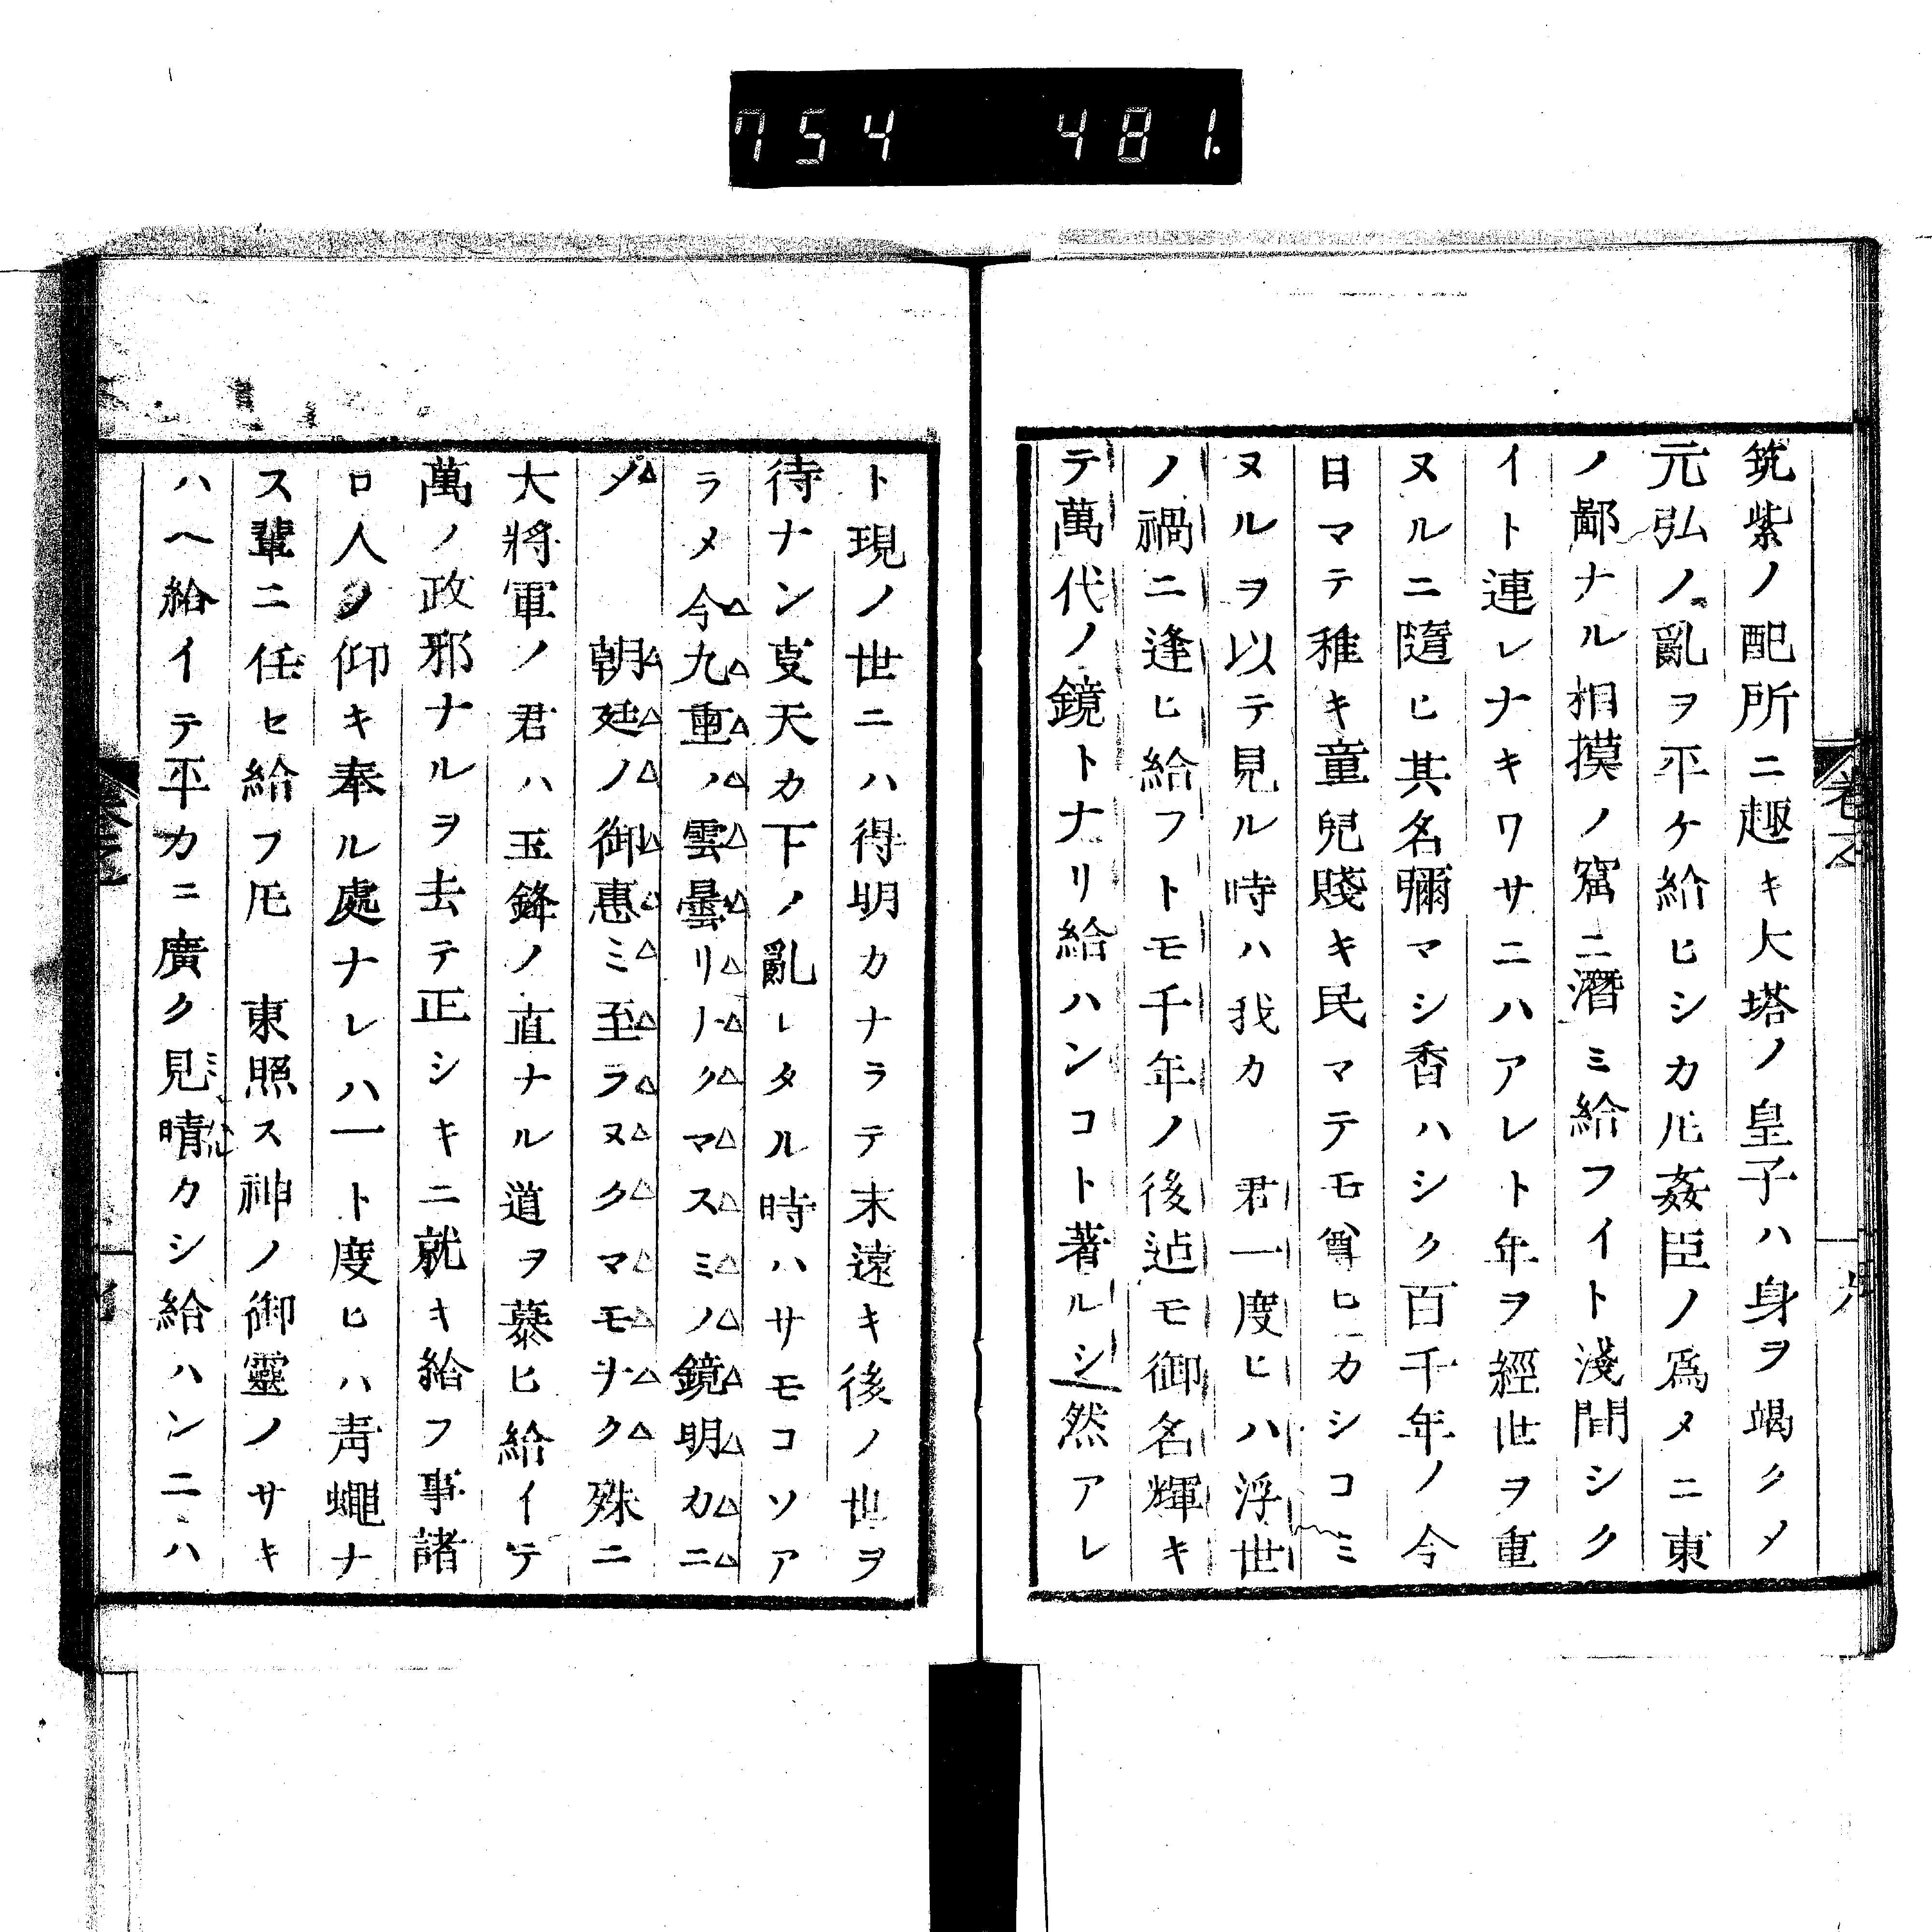 754 481.
筑紫ノ配所ニ趣キ大塔ノ皇子ハ身ヲ竭クメ
元弘ノ亂ヲ平ケ給ヒシカ𪜈姦臣ノ爲メニ東
ノ鄙ナル相摸ノ窟ニ潛ミ給フイト淺間シク
イト連レナキワサニハアレト年ヲ經世ヲ重
ヌルニ隨ヒ其名彌マシ香ハシク百千年ノ今
日マテ稚キ童兒賤キ民マテモ尊ヒカシコミ
ヌルヲ以テ見ル時ハ我カ 君一度ヒハ浮世
ノ禍ニ逢ヒ給フトモ千年ノ後迠モ御名輝キ
テ萬代ノ鏡トナリ給ハンコト著ルシ然アレ
ト現ノ世ニハ得明カナラテ末遠キ後ノ世ヲ
待ナン叓天カ下ノ亂レタル時ハサモコソア
ラメ今九重ノ雲曇リナクマスミノ鏡明カニ
〆 朝廷ノ御惠ミ至ラヌクマモヲク殊ニ
大將軍ノ君ハ玉鋒ノ直ナル道ヲ慕ヒ給イテ
萬ノ政邪ナルヲ去テ正シキニ就キ給フ事諸
ロ人ノ仰キ奉ル處ナレハ一ト度ヒハ靑蠅ナ
ス輩ニ任セ給フ𪜈 東照ス神ノ御靈ノサキ
ハヘ給イテ平カニ廣ク見晴カシ給ハンニハ